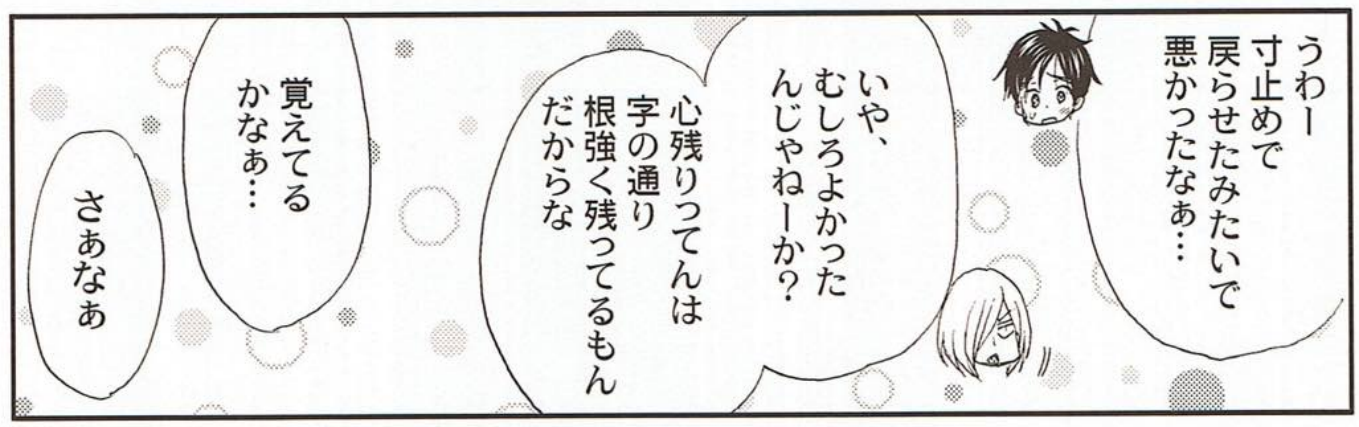 うわー
寸止めで
戻らせたみたいで
悪かったなぁ…
いや、
むしろよかった
んじゃねーか？
心残りってんは
字の通り
根強く残ってるもん
だからな
覚えてる
かなぁ…
さぁなぁ